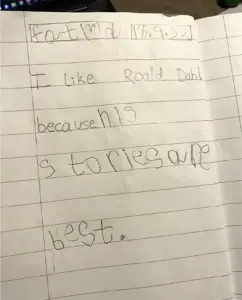 Fatima 18.9.22
I like Roald Dahl
because his
stories are
best.